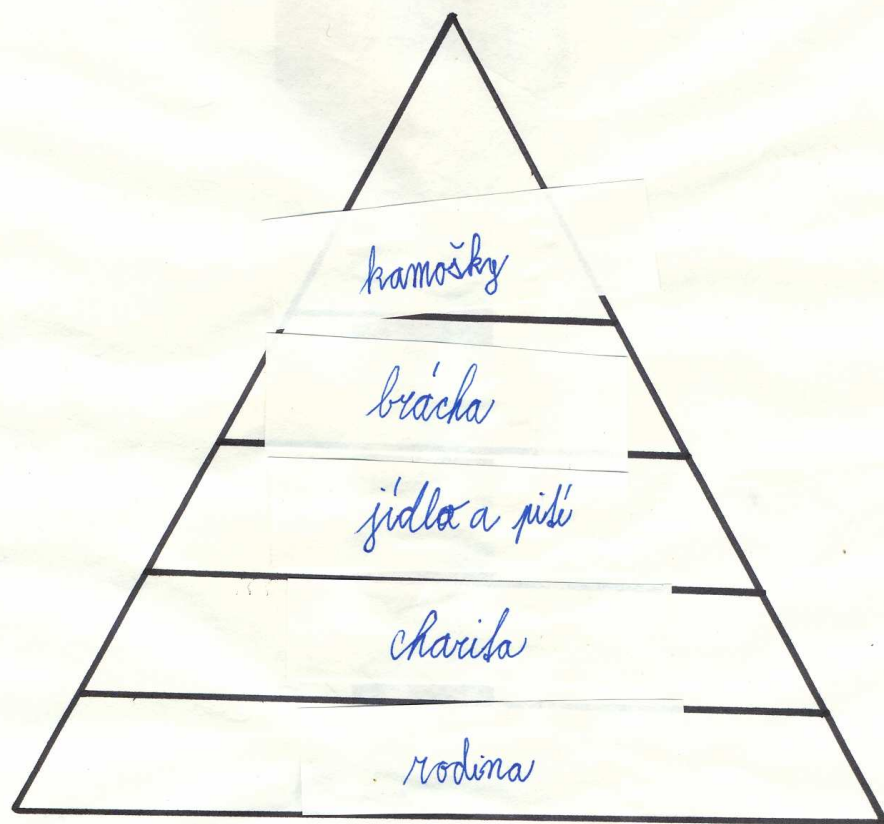 kamošky
brácha
jídlo a pití
charita
rodina